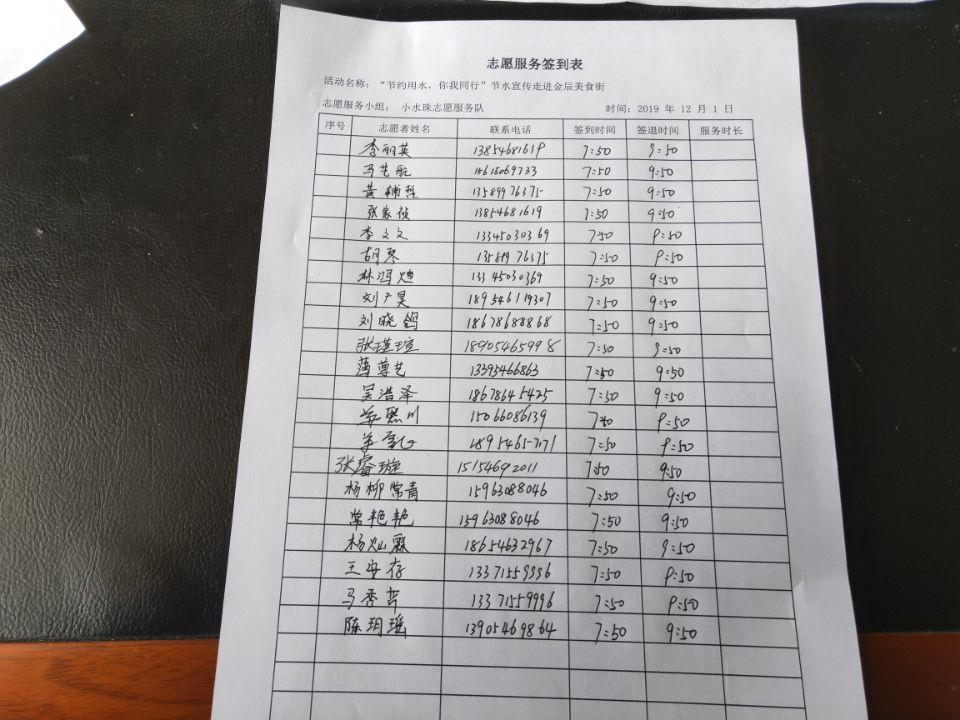 志愿服务签到表
活动名称：“节约用水，你我同行”节水宣传走进金辰美食街
志愿服务小组： 小水珠志愿服务队 时间：2019 年 12 月 1 日
序号 志愿者姓名 联系电话 签到时间 签退时间 服务时长
李丽英 13854681619 7:50 9:50
马艺航 15615069733 7:50 9:50
黄辅哲 13589976375 7:50 9:50
张家祯 13854681619 7:50 9:50
李文文 13345030369 7:50 9:50
胡琴 13589976375 7:50 9:50
林鸿旭 13345030369 7:50 9:50
刘广昊 18954619307 7:50 9:50
刘晓鸽 18678688868 7:50 9:50
张瑾瑄 18905465998 7:50 9:50
薄尊艺 13395466863 7:50 9:50
吴浩泽 18678645425 7:50 9:50
川 15066086139 7:50 9:50
18954657171 7:50 9:50
张睿璇 15154692011 7:50 9:50
杨柳常青 15963088046 7:50 9:50
常艳艳 15963088046 7:50 9:50
杨灿霖 18654632967 7:50 9:50
王安存 13371559996 7:50 9:50
马秀芹 13371559996 7:50 9:50
陈玥瑶 13905469864 7:50 9:50